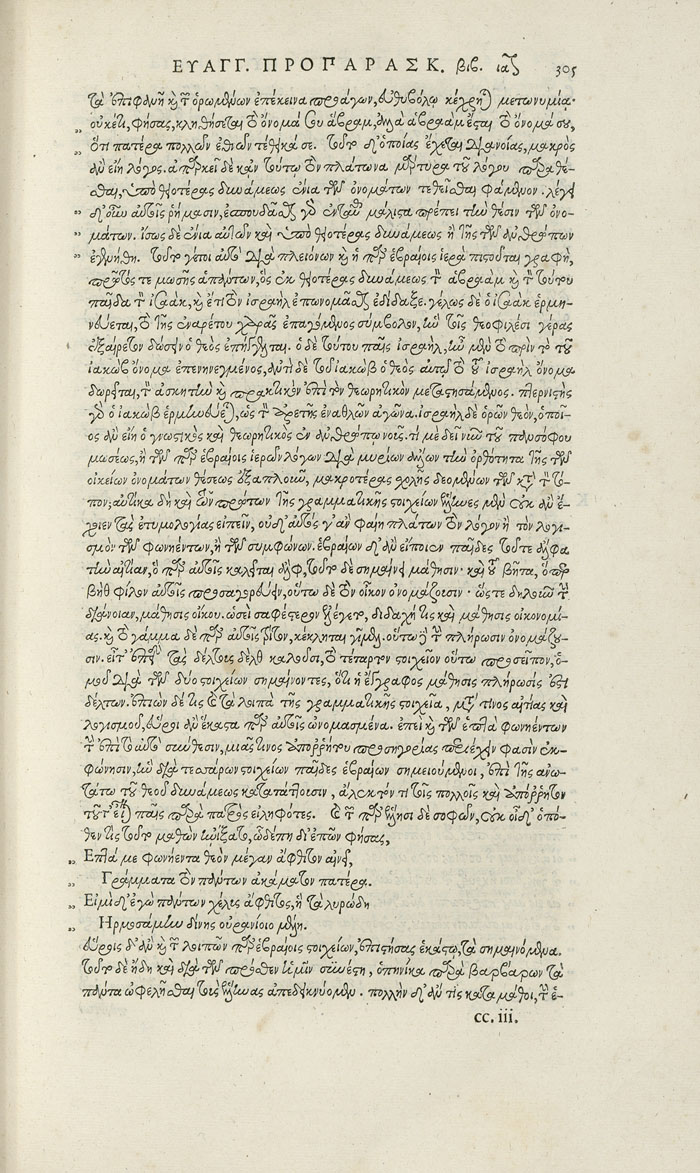 ΕΥΑΓΓ. ΠΡΟΠΑΡΑΣΚ. βιβ. ια 305
τὰ ἐπιφανῆ καὶ τῶν ὁρωμένων ἐπέκεινα προάγων, εὐθυβόλῳ κέχρηται μετωνυμίᾳ·
οὐκέτι, φήσας, κληθήσεται τὸ ὄνομά σου ἅβραμ, ἀλλὰ ἁβραὰμ ἔσται τὸ ὄνομά σου,
ὅτι πατέρα πολλῶν ἐθνῶν τέθεικά σε. τοῦτο δ' ὁποίας ἔχεται διανοίας, μακρὸς
ἂν εἴη λόγος. ἀπαρκεῖ δὲ κἀν τούτῳ τὸν πλάτωνα μάρτυρα τοῦ λόγου παραθέ-
σθαι, ὑπὸ θειοτέρας δυνάμεως ἔνια τῶν ὀνομάτων τεθεῖσθαι φάμενον. λέγει
δ' οὖν αὐτοῖς ῥήμασιν, ἐσπουδάσθαι γὰρ ἐνταῦθα μάλιστα πρέπει τὴν θέσιν τῶν ὀνο-
μάτων. ἴσως δὲ ἔνια αὐτῶν καὶ ὑπὸ θειοτέρας δυνάμεως ἢ τῆς τῶν ἀνθρώπων
ἐτέθη. τοῦτό τοι αὐτὸ διὰ πλειόνων καὶ ἡ παρ' ἑβραίοις ἱερὰ πιστοῦται γραφὴ,
πρῶτός τε μωσῆς ἁπάντων, ὃς ἐκ θειοτέρας δυνάμεως τὸν ἁβραὰμ καὶ τὸν τούτου
παῖδα τὸν ἰσαὰκ, καὶ ἔτι τὸν ἰσραὴλ ἐπωνομάσθαι ἐδίδαξε. γέλως δὲ ὁ ἰσαὰκ ἑρμη-
νεύεται, τὸ τῆς ἐναρέτου χαρᾶς ἐπαγόμενος σύμβολον, ἣν τοῖς θεοφιλέσι γέρας
ἐξαίρετον δώσειν ὁ θεὸς ἐπήγγελται. ὁ δὲ τούτου παῖς ἰσραὴλ, ἦν μὲν τὸ πρὶν τὸ τοῦ
ἰακὼβ ὄνομα ἐπενηνεγμένος, ἀντὶ δὲ τοῦ ἰακὼβ ὁ θεὸς αὐτῷ τὸ τοῦ ἰσραὴλ ὄνομα
δωρεῖται, τὸν ἀσκητὴν καὶ πρακτικὸν ἐπὶ τὸν θεωρητικὸν μεταστησάμενος. πτερνιστὴς
γὰρ ὁ ἰακὼβ ἑρμηνεύεται, ὡς τὸν ἀρετῆς ἐναθλῶν ἀγῶνα. ἰσραὴλ δὲ ὁρῶν θεὸν, ὁποῖ-
ος ἂν εἴη ὁ γνωστικὸς καὶ θεωρητικὸς ἐν ἀνθρώποις νοῦς. τί με δεῖ νῦν τοῦ πανσόφου
μωσέως, ἢ τῶν παρ' ἑβραίοις ἱερῶν λόγων διὰ μυρίων ὅλων τὴν ὀρθότητα τῆς τῶν
οἰκείων ὀνομάτων θέσεως ἐξαπλοῦν, μακροτέρας σχολῆς δεομένων τῶν κατὰ τὸν τό-
πον; αὐτίκα δὴ καὶ τῶν πρώτων τῆς γραμματικῆς στοιχείων ἕλληνες μὲν οὐκ ἂν ἔ-
χοιεν τὰς ἐτυμολογίας εἰπεῖν, οὐδ' αὐτός γ' ἂν φαίη πλάτων τὸν λόγον ἢ τὸν λογι-
σμὸν τῶν φωνηέντων, ἢ τῶν συμφώνων. ἑβραίων δ' ἂν εἴποιεν παῖδες τοῦτε ἄλφα
τὴν αἰτίαν, ὃ παρ' αὐτοῖς καλεῖται ἄλφ, τοῦτο δὲ σημαίνει μάθησιν· καὶ τοῦ βῆτα, ὃ παρ'
βὴθ φίλον αὐτοῖς προσαγορεύειν, οὕτω δὲ τὸν οἶκον ὀνομάζουσιν· ὥς τε δηλοῦν τὴν
διάνοιαν, μάθησις οἴκου. ὡσεὶ σαφέστερον ἐλέγετο, διδαχή τις καὶ μάθησις οἰκονομί-
ας. καὶ τὸ γάμμα δὲ παρ' αὐτοῖς κέκληται γίμελ. οὕτω γὰρ τὴν πλήρωσιν ὀνομάζου-
σιν. εἶτ' ἐπεὶ τὰς δέλτους δὲλθ καλοῦσι, τὸ τέταρτον στοιχεῖον οὕτω προσεῖπον, ὁ-
μοῦ διὰ τῶν δύο στοιχείων σημαίνοντες, ὅτι ἡ ἔγγραφος μάθησις πλήρωσίς ἐστι
δέλτων. ἐπιὼν δέ τις καὶ τὰ λοιπὰ τῆς γραμματικῆς στοιχεῖα, μετά τινος αἰτίας καὶ
λογισμοῦ, εὕροι ἂν ἕκαστα παρ' αὐτοῖς ὠνομασμένα. ἐπεὶ καὶ τῶν ἑπτὰ φωνηέντων
τὴν ἐπὶ τὸ αὐτὸ σύνθεσιν, μιᾶς τινος ἀπορρήτου προσηγορίας περιέχειν φασὶν ἐκ-
φώνησιν, ἣν διὰ τεσσάρων στοιχείων παῖδες ἑβραίων σημειούμενοι, ἐπὶ τῆς ἀνω-
τάτω τοῦ θεοῦ δυνάμεως κατατάττουσιν, ἄλεκτόν τι τοῖς πολλοῖς καὶ ἀπόρρητον
τοῦτ' εἶναι παῖς παρὰ πατρὸς εἰληφότες. καὶ τῶν παρ' ἕλλησι δὲ σοφῶν, οὐκ οἶδ' ὁπό-
θεν τις τοῦτο μαθὼν ᾐνίξατο, ὧδέ πη δι' ἐπῶν φήσας,
Επτά με φωνήεντα θεὸν μέγαν ἄφθιτον αἰνεῖ,
Γράμματα τὸν πάντων ἀκάματον πατέρα.
Εἰμὶ δ' ἐγὼ πάντων χέλυς ἄφθιτος, ἣ τὰ λυρώδη
Ηρμοσάμην δίνης οὐρανίοιο μέλη.
εὕροις δ' ἂν καὶ τῶν λοιπῶν παρ' ἑβραίοις στοιχείων, ἐπιστήσας ἑκάστῳ, τὰ σημαινόμενα.
τοῦτο δὲ ἤδη καὶ διὰ τῶν πρόσθεν ἡμῖν συνέστη, ὁπηνίκα παρὰ βαρβάρων τὰ
πάντα ὠφελῆσθαι τοὺς ἕλληνας ἀπεδείκνυομεν. πολλὴν δ' ἄν τις καταμάθοι, τὴν ἑ-
cc. iii.